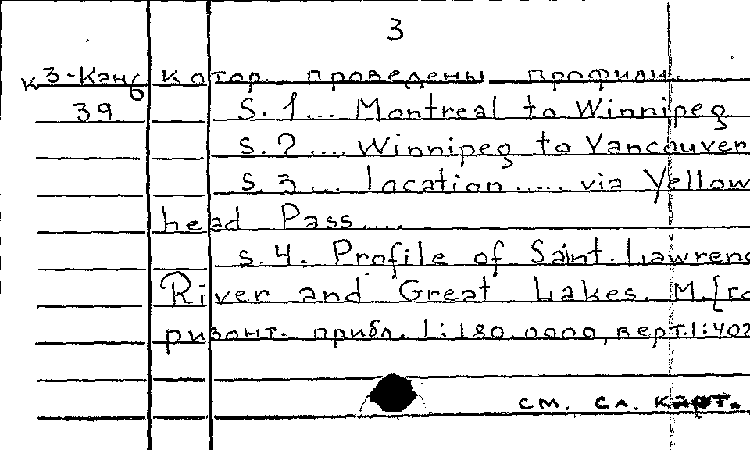 3
К3-Кан6 котор. проведены профили.
39 S. 1... Montreal to Winnipeg
S. 2.... Winnipeg to Vancouver
S. 3.... Location..... via Yellow
head Pass....
S. 4. Profile of Saint Lawrenc
River and Great Lakes. М.[го
ризонт. прибл. 1:180.0000, верт.1:402
см. сл. карт.